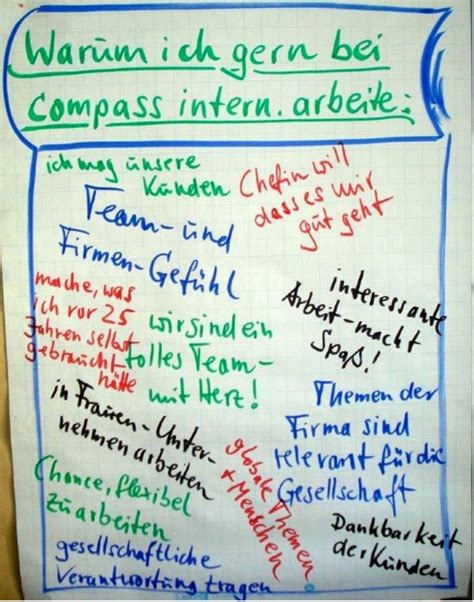 Warum ich gern bei
Compass intern. arbeite:
ich mag unsere
Kunden
Chefin will
dass es mir
gut geht
Team- und
Firmen-Gefühl
mache, was
ich vor 25
Jahren selbst
gebraucht
hätte
wir sind ein
tolles Team-
mit Herz!
interessante
Arbeit-macht
Spaß!
in Frauen-Unter-
nehmen arbeiten
Themen der
Firma sind
relevant für die
Gesellschaft
globale Themen
+ Menschen
Chance, flexibel
zu arbeiten
Dankbarkeit
der Kunden
gesellschaftliche
Verantwortung tragen